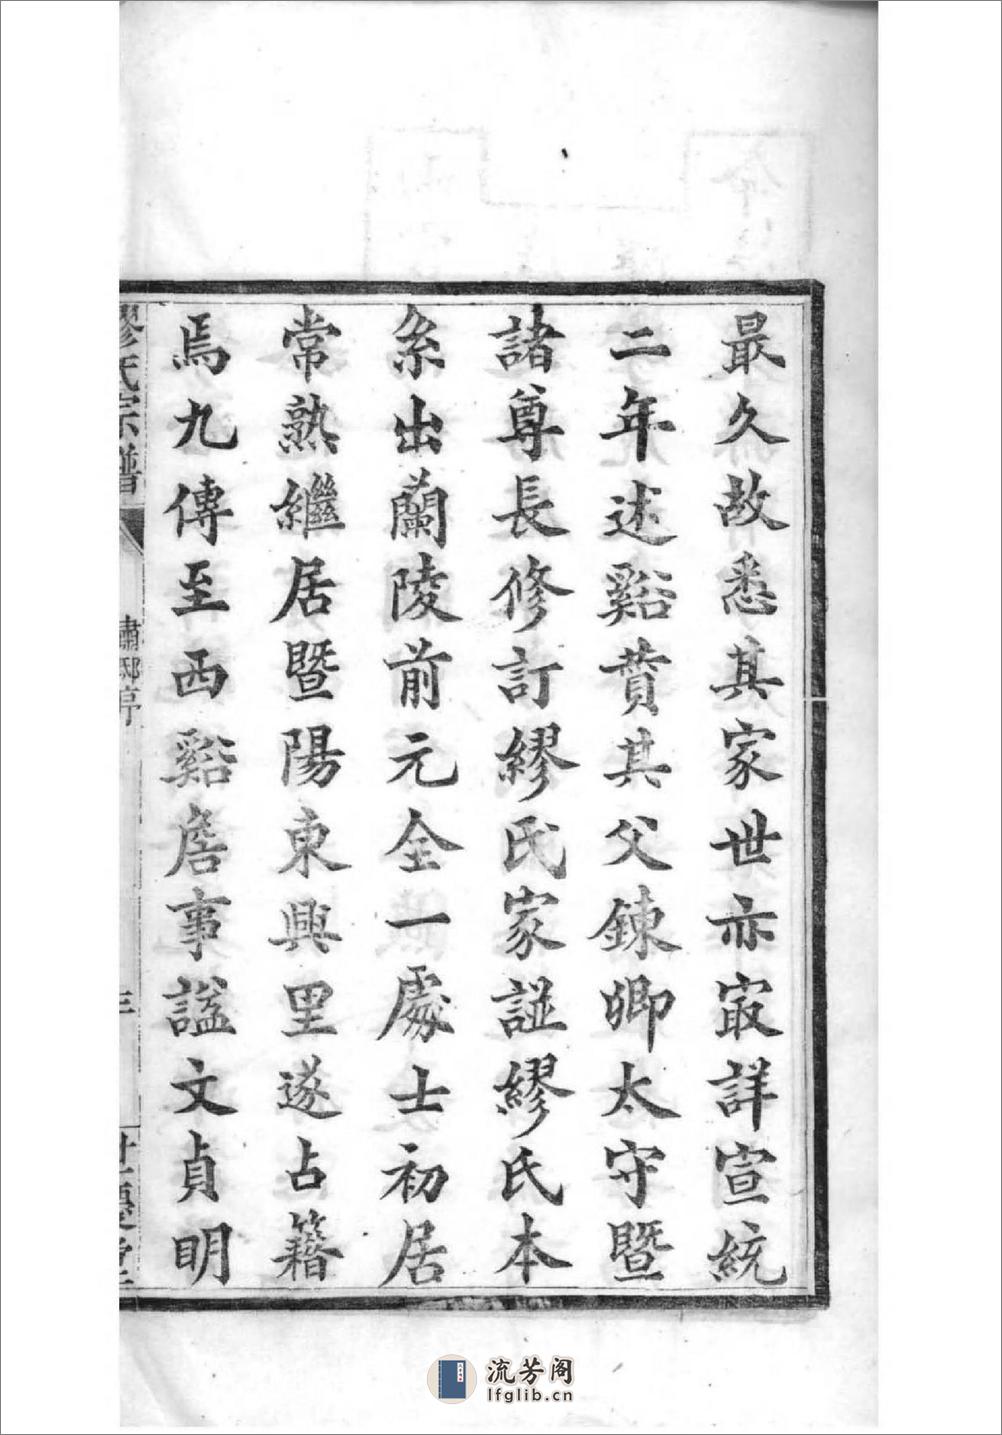 最久故悉其家世亦冣詳宣統
二年述谿賁其父鍊卿太守暨
諸尊長修訂繆氏家諩繆氏本
系出蘭陵前元全一處士初居
常熟繼居暨陽東興里遂占籍
焉九傳至西谿詹事諡文貞明
繆氏宗譜
流芳阁
lfglib.cn